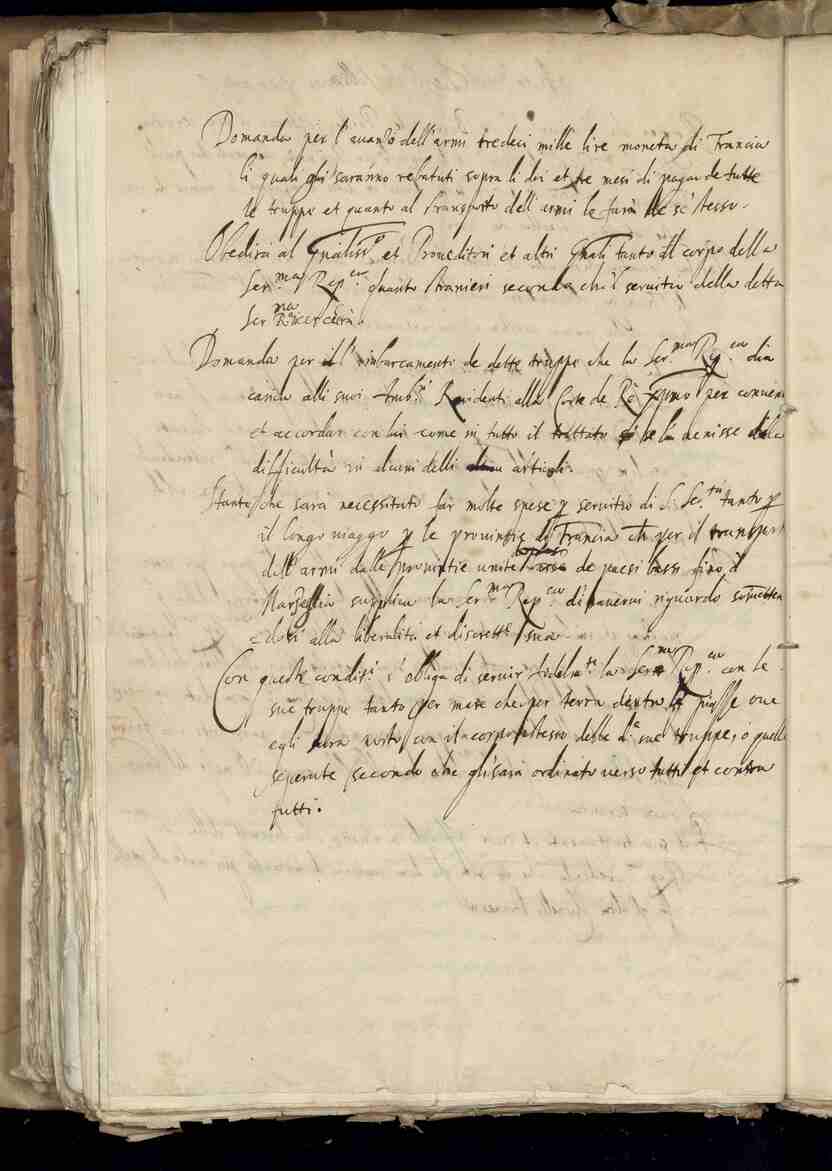 Domanda per l'auanzo dell'armi tredeci mille lire moneta di Francia
li quali gli saranno rebatuti sopra li doi et tre mesi di pagha de tutte
le truppe et quanto al transporto dell'armi le farà lle se stesso.
Obedirà al Gñaliss.o et Proueditori et altri Gñali tanto del corpo della
Ser.ma Rep.ca quanto stranieri secondo ch'il seruitio della detta
Ser.ma
Domanda per ill' imbarcamenti de dette truppe che la Ser.ma Rep.ca dia
carica alli suoi Amb.ri Residenti alla Corte de Rè per conuen
et accordar con lui come in tutto il trattato se la uenisse
difficultà in alcuni delli articoli.
Stante che sarà necessitato far molte spese p seruitio di S. Se.tà tanto p
il longo uiaggo p le prouintie di Francia ch per il transpor
dell'armi dalle prouintie unite de paesi bassi fino à
Marzeglia supplica la Ser.ma Rep.ca di hauerui riguardo somettẽ
edosi alla liberalità et discrett.e sua.
Con queste condit.i s'obliga di seruir fidelm.te la Ser.ma Rep.ca con le
sue truppe tanto per mare che per terra dentro le piazze oue
egli sarà posto con il corpo istesso delle d.e sue truppe, ò quelle
seperate secondo che gli sarà ordinato uerso tutti et contra
tutti.